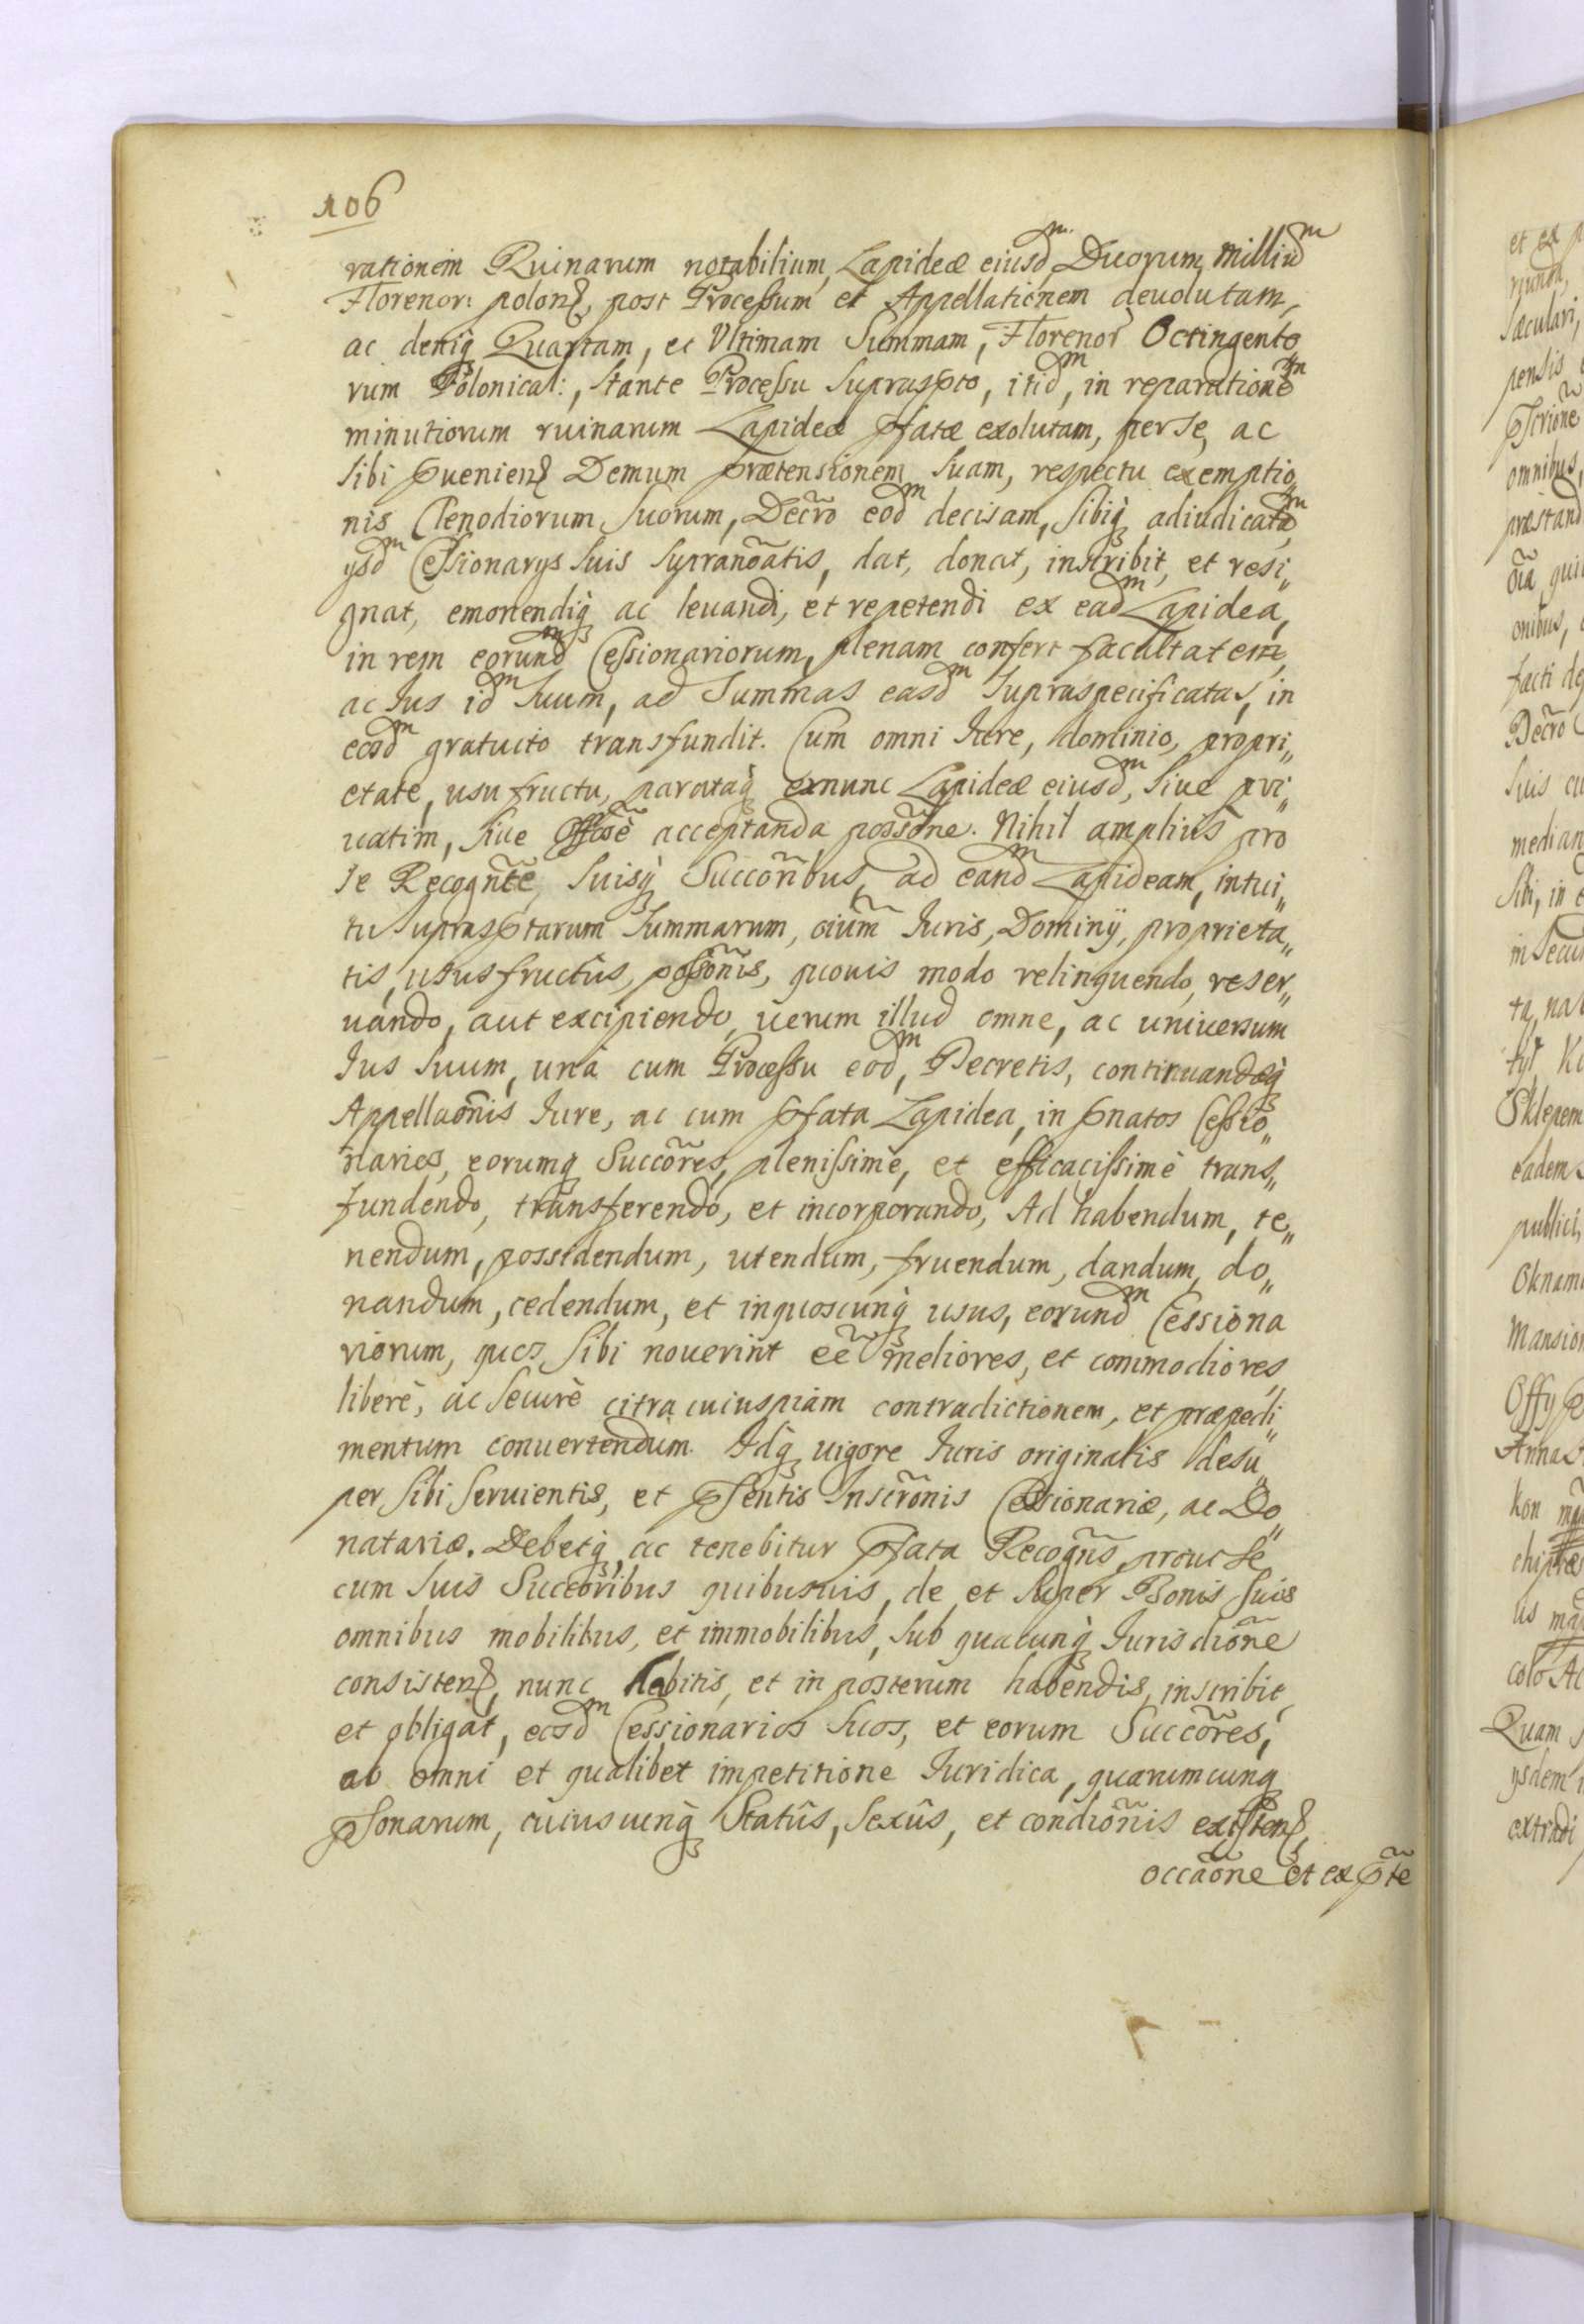 106
rationem Ruinarum notabilium, Lapideæ eiusdᵐ Duorum milliuᵐ
Florenor: polon̄, post Processum et Appellationem deuolutam,
ac deniq̀ Quartam, et Vltimam Summam, Florenor̃ Octingento
rum Polonical:, stante Processu supraspto, itidᵐ, in reparationeᵐ
minutiorum ruinarum Lapideæ pfatæ exolutam, per se, ac
sibi pueniem̄ Demum prætensionem suam, respectu exemptio„
nis Clenodiorum suorum, Decr̃o eodᵐ decisam, sibiq̀ adiudicataᵐ
ysdᵐ Cessionarys suis supranõatis, dat, donat, inscribit, et resi„
gnat, emonendiq̀ ac leuandi, et repetendi ex eadᵐ Lapidea,
in rem eorundᵐ Cessionariorum, plenam confert facultatem,
ac Jus idᵐ suum, ad Summas easdᵐ supraspecificatas, in
eosdᵐ gratuito transfundit. Cum omni Iure, dominio, propri„
etate, usufructu, parataq̀ exnunc Lapideæ eiusdᵐ, siue pri„
uatim, siue Offõsè acceptanda possõne. Nihil amplius pro
se Recogñte, suisq̀ Succorĩbus, ad eandᵐ Lapideam, intui„
tu suprasptarum Summarum, oiũm Iuris, Dominÿ, proprieta„
tis, usus fructûs, possõnis, quouis modo relinquendo, reser„
uando, aut excipiendo, uerum illud omne, ac uniuersum
Ius suum, unà cum Processu eodᵐ, Decretis, continuandæq̀
Appellaõnis Iure, ac cum pfata Lapidea, in pnatos Cessio„
narios, eorumq̀ Succõres, plenissimè, et efficacissimè trans„
fundendo, transferendo, et incorporando, Ad habendum, te„
nendum, possidendum, utendum, fruendum, dandum, do„
nandum, cedendum, et inquoscunq̀ usus, eorundᵐ Cessiona
riorum, quos sibi nouerint eẽ meliores, et commodiores,
liberè, ac securè citra cuiuspiam contradictionem, et præpedi„
mentum conuertendum. Idq̀ uigore Iuris originalis desu„
per sibi seruientis, et psentis Inscrõnis Cessionariæ, ac Do„
natariæ. Debetq̀, ac tenebitur pfata Recogñs, prout se
cum suis Succorĩbus quibusuis, de et super Bonis suis
omnibus mobilibus, et immobilibus, sub quacunq̀ Iurisdiõne
consisten̄, nunc habitis, et in posterum habendis, inscribit,
et obligat, eosdᵐ Cessionarios suos, et eorum Succõres,
ab omni et qualibet impetitione Iuridica, quarumcunq̀
psonarum, cuiusuenq̀ Statûs, sexûs, et condiõnis existen̄,
occaõne et ex pte